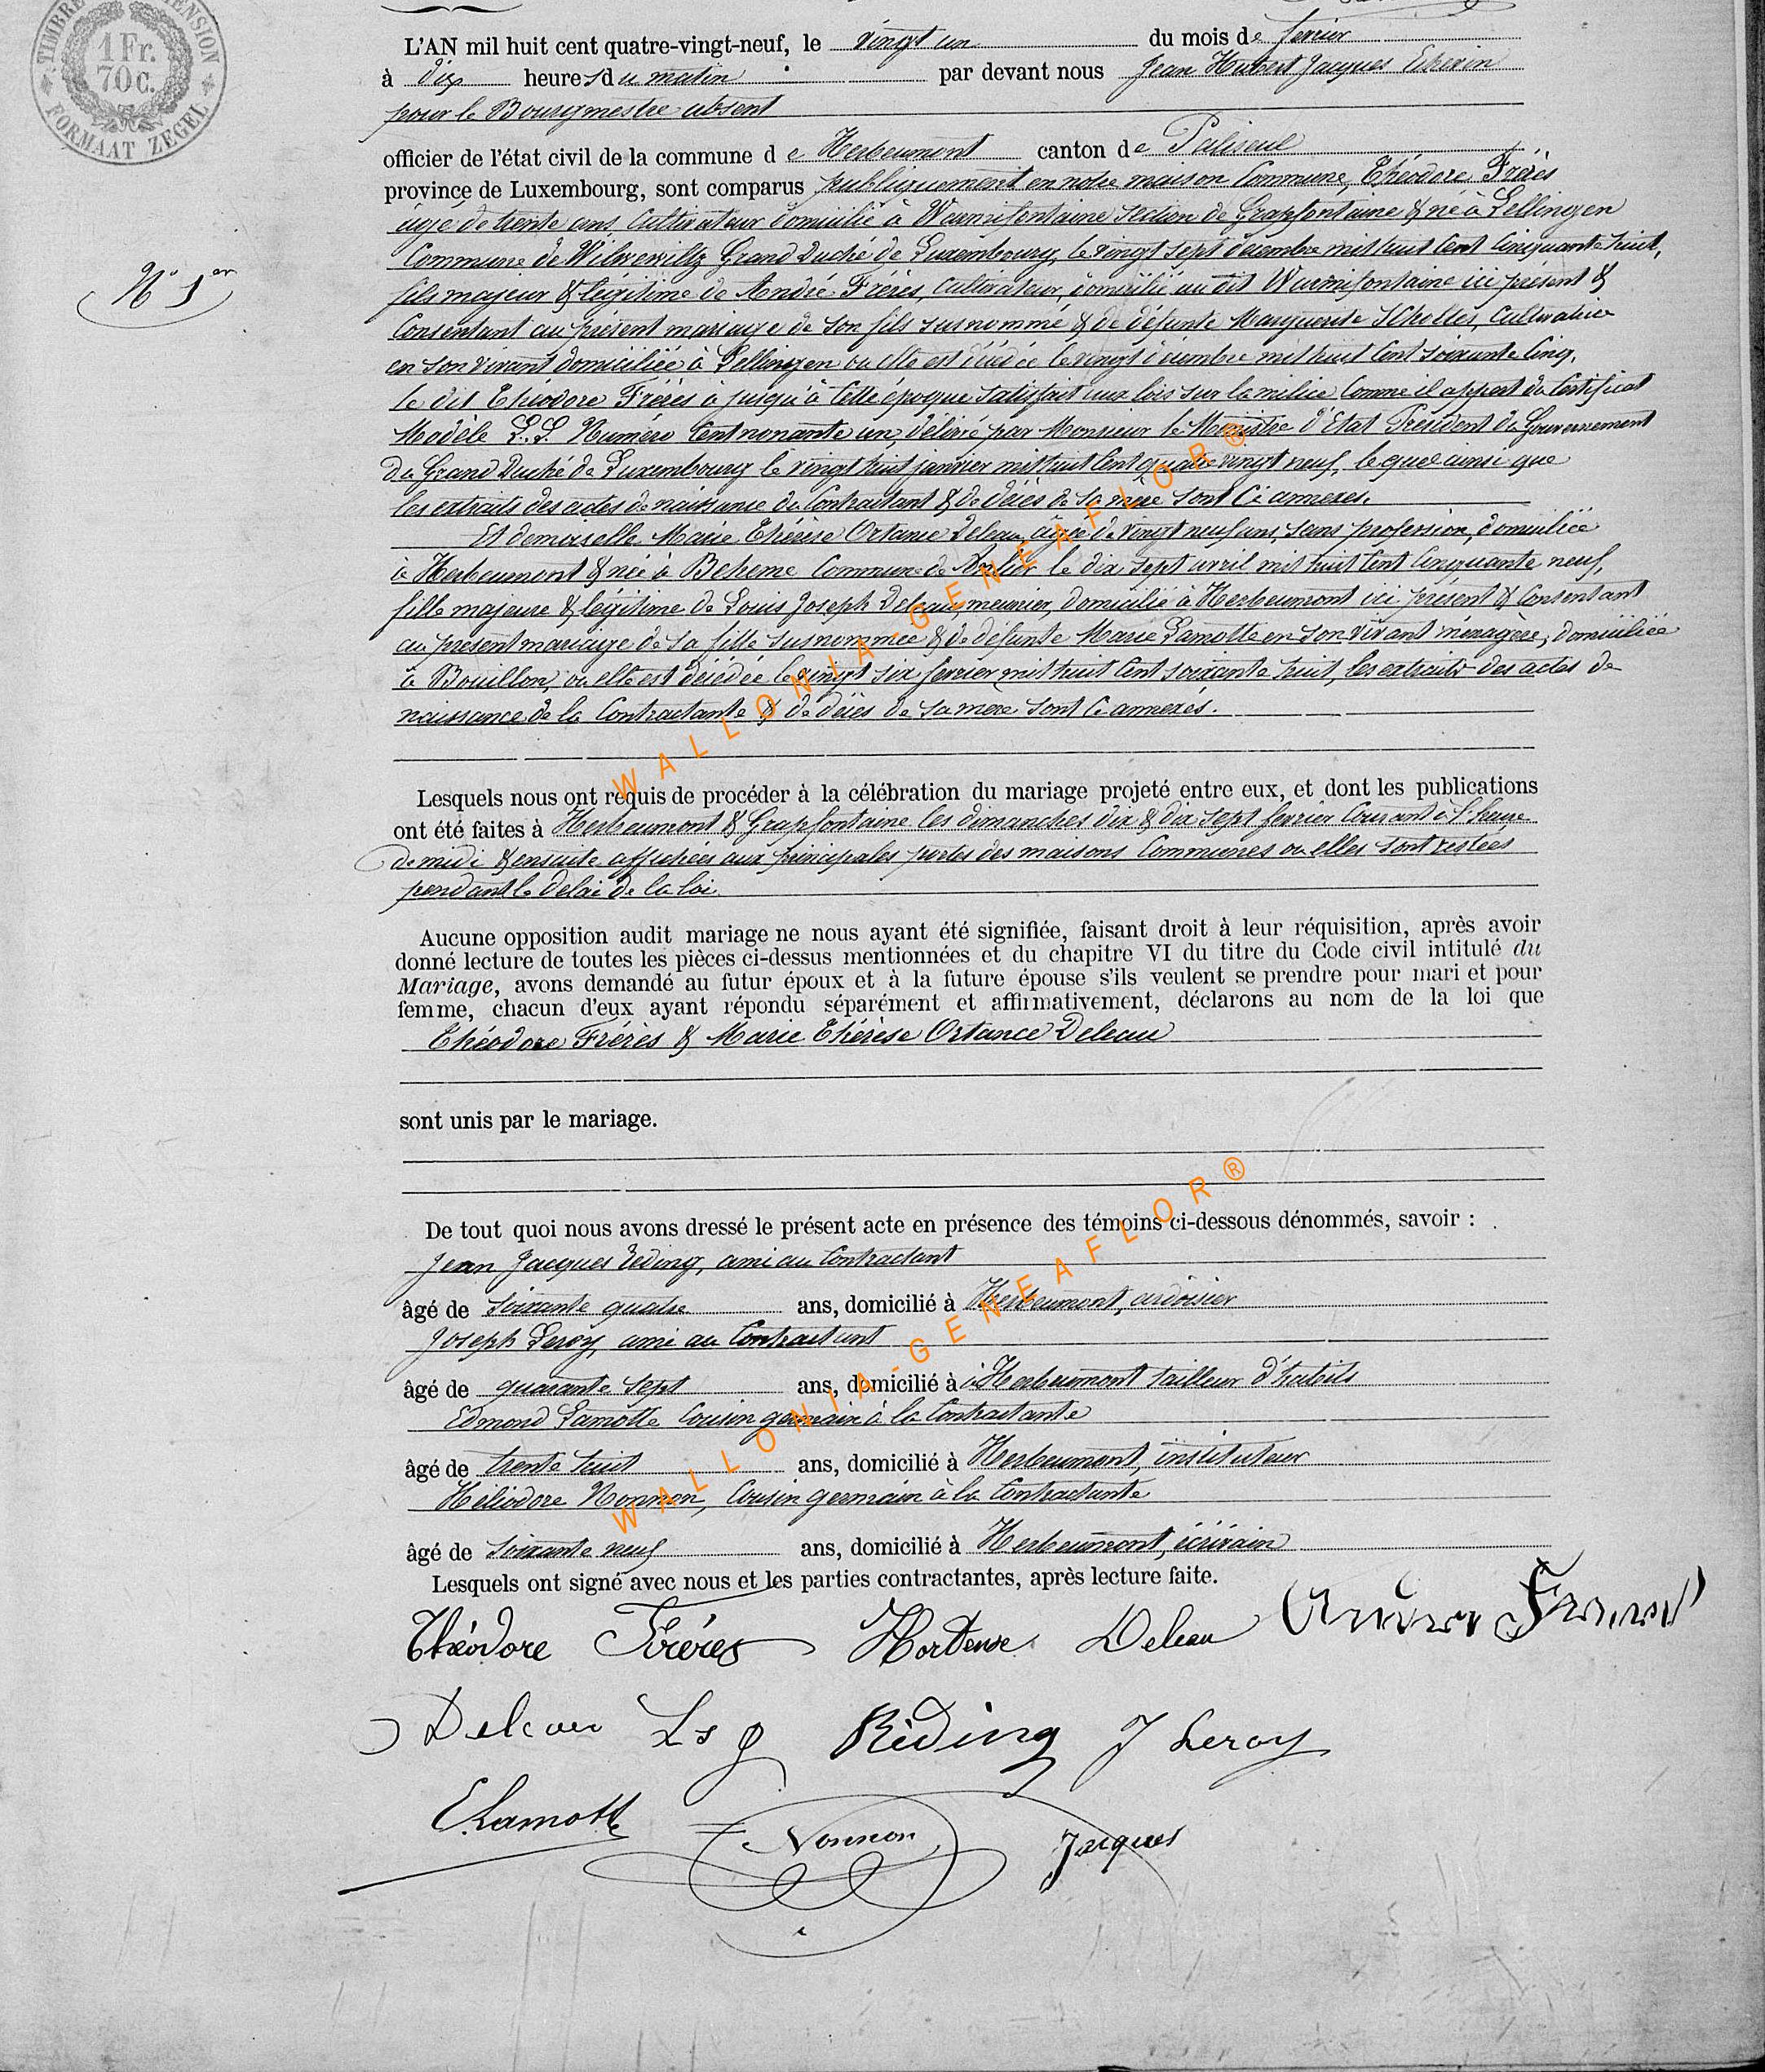 TIMBRE DIMENSION
1 Fr.
70 c.
FORMAAT ZEGEL
L'AN mil huit cent quatre-vingt-neuf, le vingt un du mois de février
à dix heures du matin par devant nous Jean Hubert Jacques Echevin
pour le Bourgmestre absent
officier de l'état civil de la commune de Herbeumont canton de Paliseul
province de Luxembourg, sont comparus publiquement en notre maison Commune, Théodore Frérès
âgé de trente ans, Cultivateur domicilié à Warmifontaine section de Grapfontaine & né à Sellingen
Commune de Wilwerwiltz Grand Duché de Luxembourg, le vingt sept décembre mil huit Cent Cinquante huit,
N° 1er
fils majeur & légitime de André Frérès, Cultivateur, domicilié au dit Warmifontaine ici présent &
Consentant au présent mariage de son fils susnommé & de défunte Marguerite Scholtes, Cultivatrice
en son vivant domiciliée à Sellingen ou elle est décédée le vingt décembre mil huit Cent soixante Cinq,
le dit Théodore Frérès a jusqu'à Cette époque satisfait aux lois sur la milice Comme il appert du Certificat
Modèle L.L. Numéro Cent nonante un, délivré par Monsieur le Ministre d'Etat Président du Gouvernement
du Grand Duché de Luxembourg le vingt huit janvier mil huit Cent quatre vingt neuf, lequel ainsi que
les extraits des actes de naissance du Contractant & de décès de sa mère sont Ci annexés.
Et demoiselle Marie Thérèse Ortance Deleau, âgée de vingt neuf ans, sans profession, domiciliée
à Herbeumont & née à Beheme Commune de Anlier le dix sept avril mil huit Cent Cinquante neuf,
fille majeure & légitime de Louis Joseph Deleau, meunier, domicilié à Herbeumont ici présent & Consentant
au présent mariage de sa fille susnommée & de défunte Marie Lamotte en son vivant ménagère, domiciliée
à Bouillon, ou elle est décédée le vingt six fevrier mil huit Cent soixante huit, les extraits des actes de
naissance de la Contractante & de décès de sa mere sont Ci annexés.
WALLONIA-GENEAFLOR®
Lesquels nous ont requis de procéder à la célébration du mariage projeté entre eux, et dont les publications
ont été faites à Herbeumont & Grapfontaine les dimanches dix & dix sept fevrier Courant à l'heure
de midi & ensuite affichées aux principales portes des maisons Communes ou elles sont restées
pendant le delai de la loi.
Aucune opposition audit mariage ne nous ayant été signifiée, faisant droit à leur réquisition, après avoir
donné lecture de toutes les pièces ci-dessus mentionnées et du chapitre VI du titre du Code civil intitulé du
Mariage, avons demandé au futur époux et à la future épouse s'ils veulent se prendre pour mari et pour
femme, chacun d'eux ayant répondu séparément et affirmativement, déclarons au nom de la loi que
Théodore Frérès & Marie Thérèse Ortance Deleau
sont unis par le mariage.
De tout quoi nous avons dressé le présent acte en présence des témoins ci-dessous dénommés, savoir :
Jean Jacques Reding, ami au Contractant
âgé de soixante quatre ans, domicilié à Herbeumont, ardoisier
Joseph Leroy, ami au Contractant
âgé de quarante sept ans, domicilié à à Herbeumont tailleur d'habits
Edmond Lamotte Cousin germain à la Contractante
âgé de trente huit ans, domicilié à Herbeumont, instituteur
Héliodore Nonnon, Cousin germain à la Contractante
âgé de soixante neuf ans, domicilié à Herbeumont, écrivain
WALLONIA-GENEAFLOR®
Lesquels ont signé avec nous et les parties contractantes, après lecture faite.
Théodore Frérès Hortense Deleau
Deleau Ls J Rèding J Leroy
E. Lamotte Nonnon Jacques